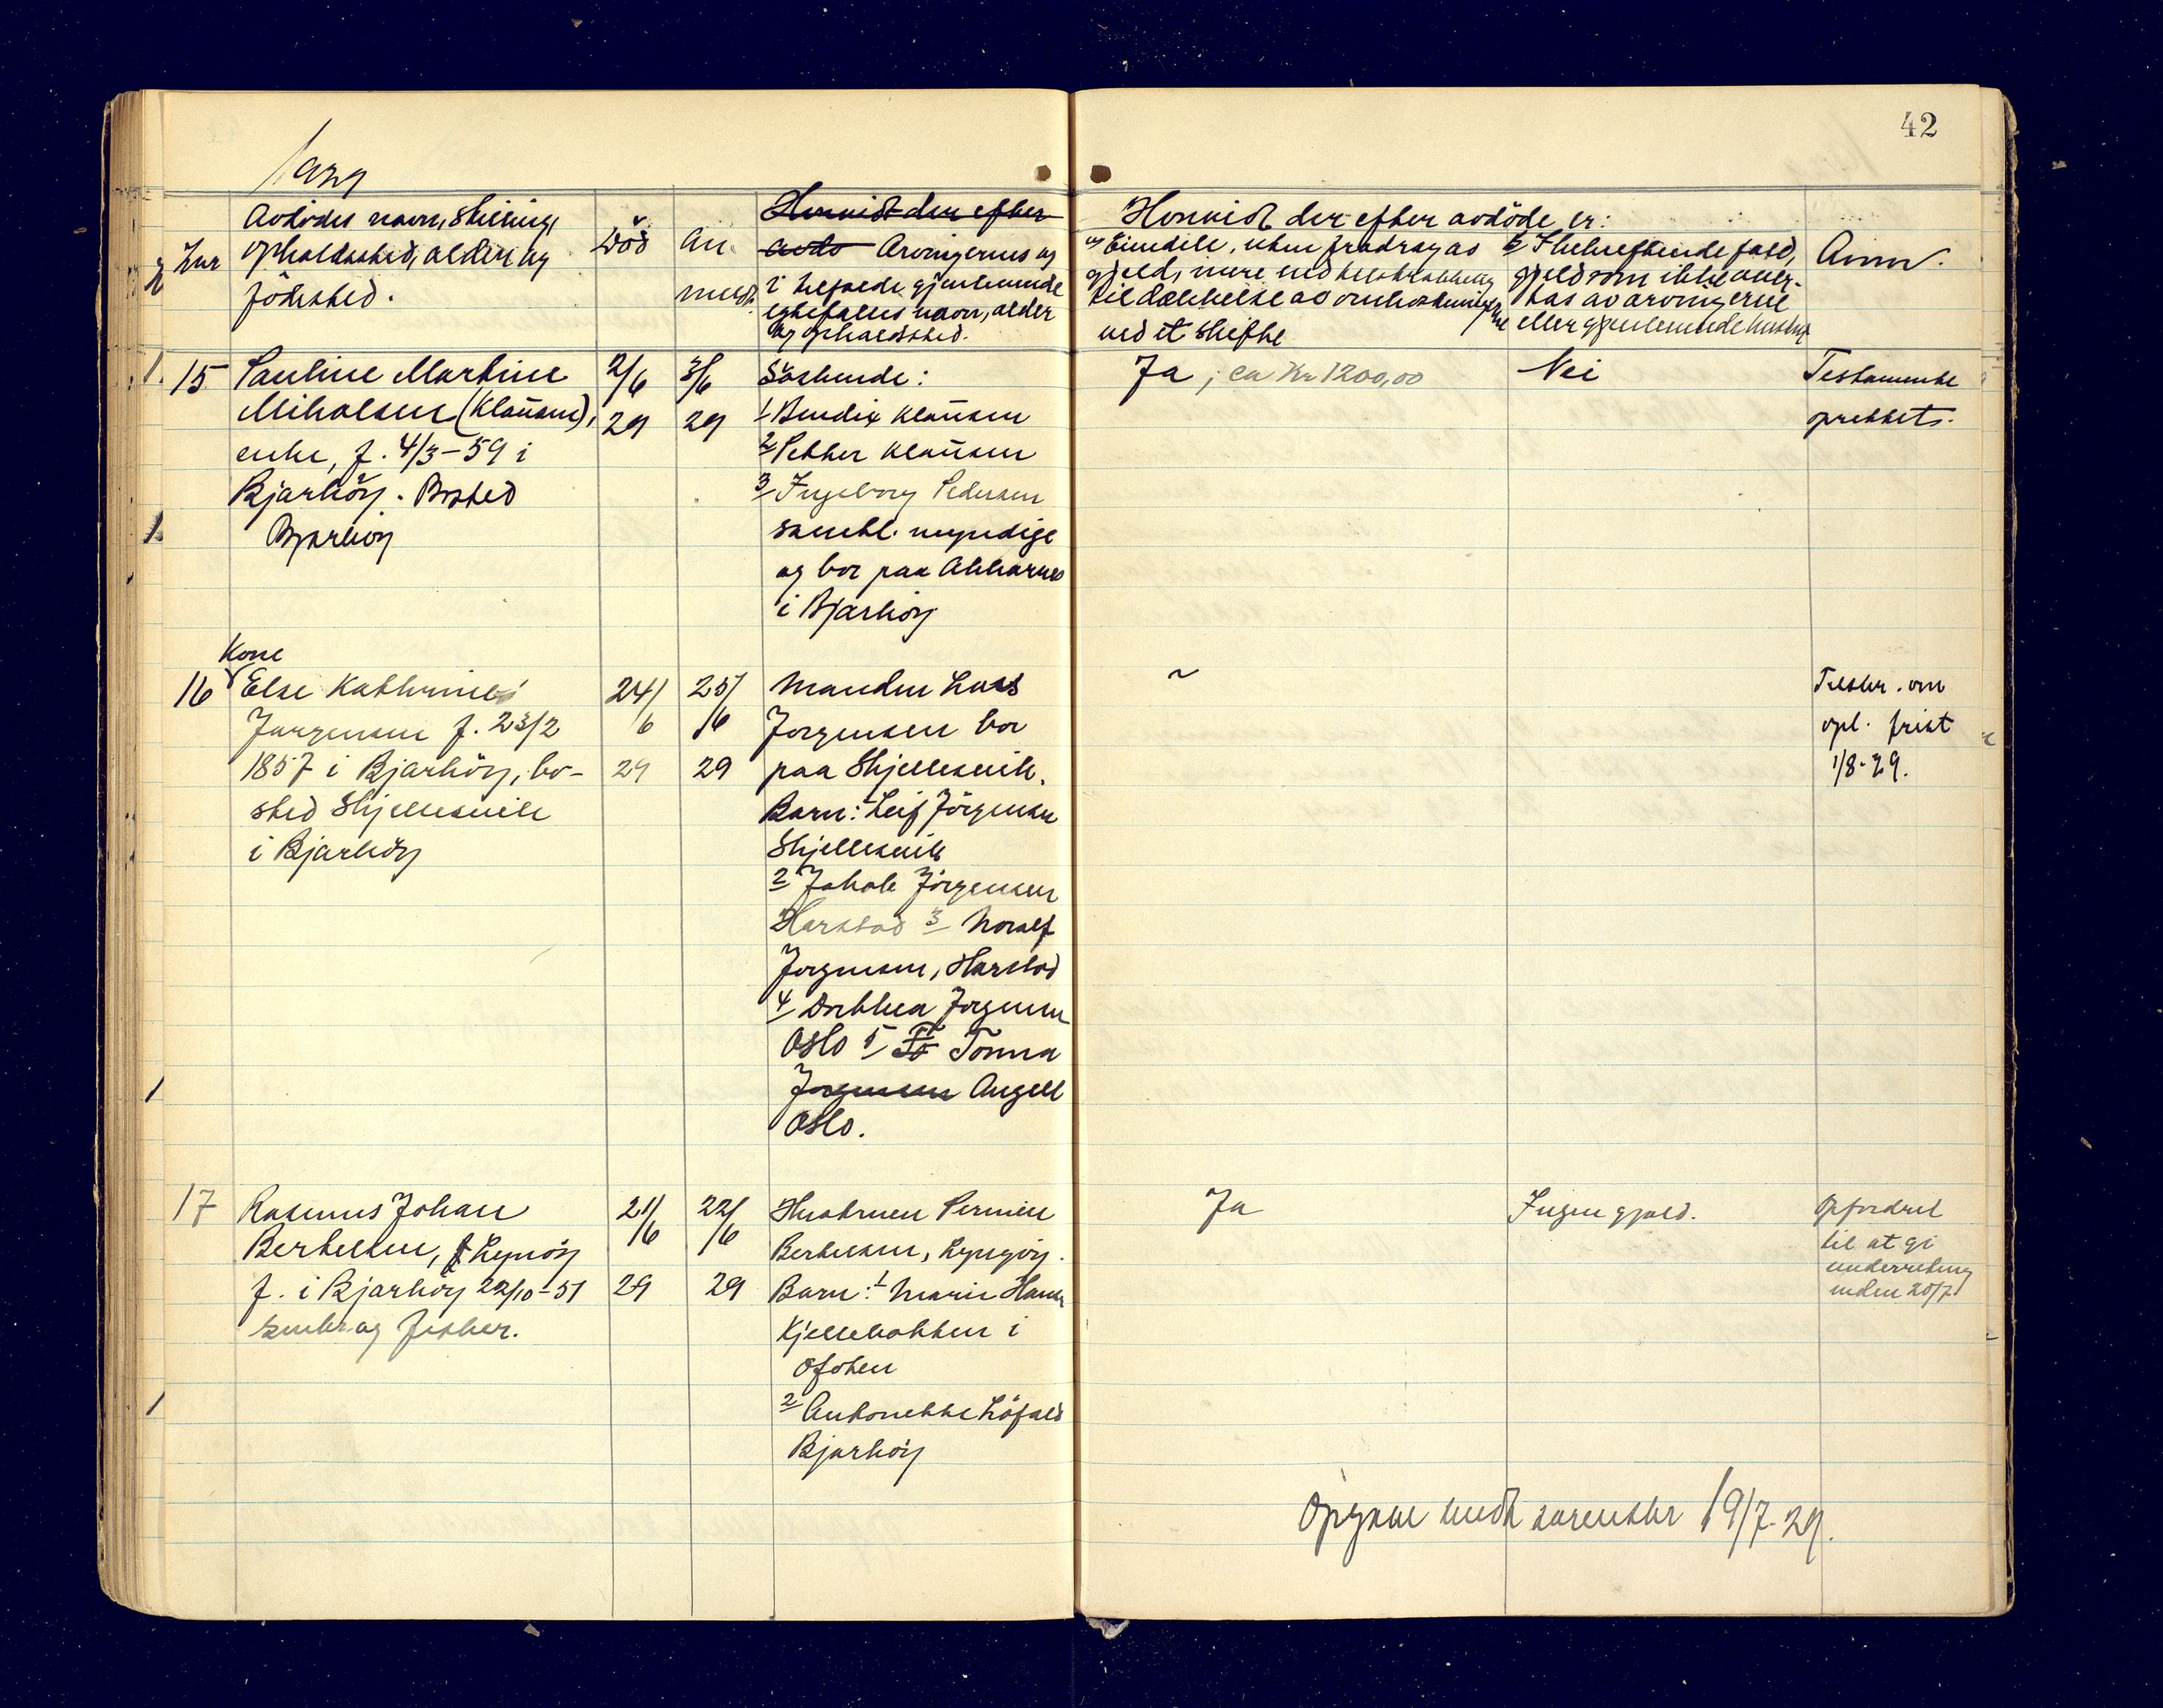 42
1929
Avdødes navn, stilling,
Lnr opholdssted, alder og
fødested.
Død
An
meldt.
Hvorvidt der efter
avdø Arvingernes og
i tilfælde gjenlevende
egtefælles navn, alder
og opholdssted.
Hvorvidt der efter avdøde er:
a/ Eiendele, uten fradrag av
gjeld, mere end
til dækkelse av omkostningerne
ved et skifte
b/ I bekræftende fald,
gjeld som ikke over-
tas av arvingerne
eller gjenlevende hustru
Anm.
15 Pauline Martine
Mikalsen (Klausen),
enke, f. 4/3-59 i
Bjarkøy. Bosted
Bjarkøy
2/6
29
3/6
29
Søskende:
1/ Bendix Klausen
2/ Petter Klausen
3/ Ingeborg Pedersen
samtl. myndige
og bor paa Alkarnes
i Bjarkøy
Ja, ca Kr 1200,00
Nei
Testamente
oprettet.
Kone
16 Else Kathrine
Jørgensen f. 23/2
1857 i Bjarkøy, bo-
sted Skjellesvik
i Bjarkøy
24/
6
29
25/
6
29
Manden Lars
Jørgensen bor
paa Skjellesvik.
Barn: 1 Leif Jørgensen
Skjellesvik
2 Jakob Jørgensen
Harstad 3/ Noralf
Jørgensen, Harstad
4/ Dorthea Jørgensen
Oslo 5/ To Tonna
Jørgensen Angell
Oslo.
~
Tilskr. om
opl. frist
1/8-29.
17 Rasmus Johan
Bertelsen, Lynøy
f. i Bjarkøy 22/10-51
enkem og fisker.
21/
6
29
22/
6
29
Hustruen Pernien
Bertelsen, Lyngøy.
Barn: 1 Marie Hansen
Kjellebakken i
Ofoten
2 Antonette Løfald
Bjarkøy
Ja
Ingen gjæld.
Opfordret
til at gi
underretning
inden 20/7
Opgave sendt sorenskr 19/7-29.